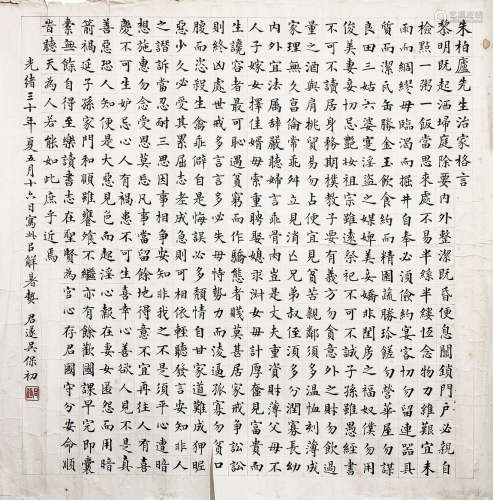 朱柏廬先生治家格言
黎明既起洒埽庭除要内外整潔既昏便息關鎖門户必親自
檢點一粥一飯當思來處不易半絲半縷恒念物力維艱宜未
雨而綢繆毋臨渴而掘井自奉必須儉約宴客切勿留連器具
質而潔瓦缶勝金玉飲食約而精園蔬勝珍饈勿營華屋勿謀
良田三姑六婆實淫盗之媒婢美妾嬌非閨房之福奴僕勿用
俊美妻妾切忌艷妝祖宗雖遠祭祀不可不誠子孫雖愚經書
不可不讀居身務期樸質教子要有義方勿貪意外之財勿飲過
量之酒與肩挑貿易勿占便宜見貧苦親鄰須多温恤刻薄成
家理無久享倫常乖舛立見消亡兄弟叔侄須多分潤寡長幼
外宜法屬辭嚴聽婦言乖骨肉豈是丈夫重資財薄父母不
人子嫁女擇佳婿毋索重聘娶媳求淑女毋計厚奩見富貴而
生讒容者最可耻遇貧窮而作驕態者賤莫甚居家戒爭訟訟
則終凶處世戒多言言多必失毋恃勢力而凌逼孤寡勿貪口
腹而恣殺生禽乖僻自是悔誤必多頽惰自甘家道難成狎昵
惡少久必受其累屈志老成急則可相依輕聽發言安知非人
之譖訴當忍耐三思因事相爭安知非我之不是須平心遭暗
想施惠勿念受恩莫忘凡事當留餘地得意不宜再往人有喜
慶不可生妒忌心人有禍患不可生喜幸心善欲人見不是真
善惡恐人知便是大惡見色而起淫心報在妻女匿怨而用暗
箭禍延子孫家門和順雖饔飧不繼亦有餘歡國課早完即囊
素無餘自得至樂讀書志在聖賢爲官心存君國守分安命順
皆聽天爲人若能如此庶乎近焉
光緒三十年夏五月十六日寫於呂解署齋 君遂吳保初